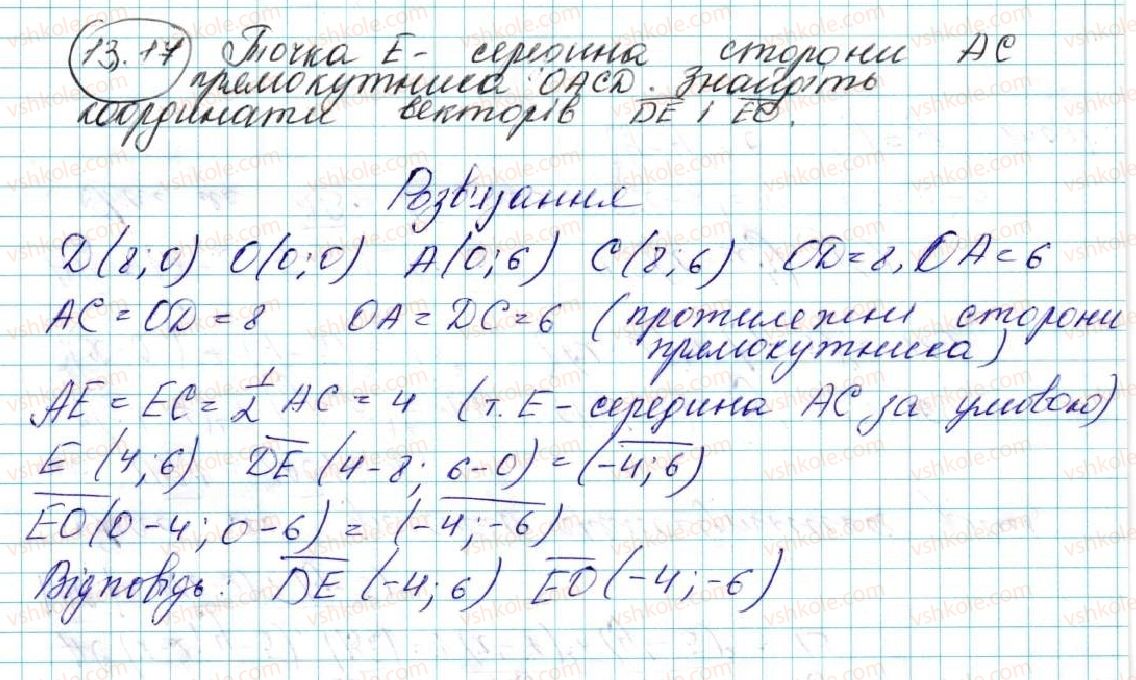 13.17 Точка E - середина сторони AC
прямокутника OACD. Знайдіть
координати векторів DE і EO.
Розв'язання
D(8;0) O(0;0) A(0;6) C(8;6) OD=8, OA=6
AC = OD = 8 OA = DC = 6 (протилежні сторони
прямокутника)
AE = EC = 1/2 AC = 4 (т. E - середина AC за умовою)
E (4;6) DE (4-8; 6-0) = (-4;6)
EO (0-4; 0-6) = (-4;-6)
Відповідь: DE (-4;6) EO (-4;-6)